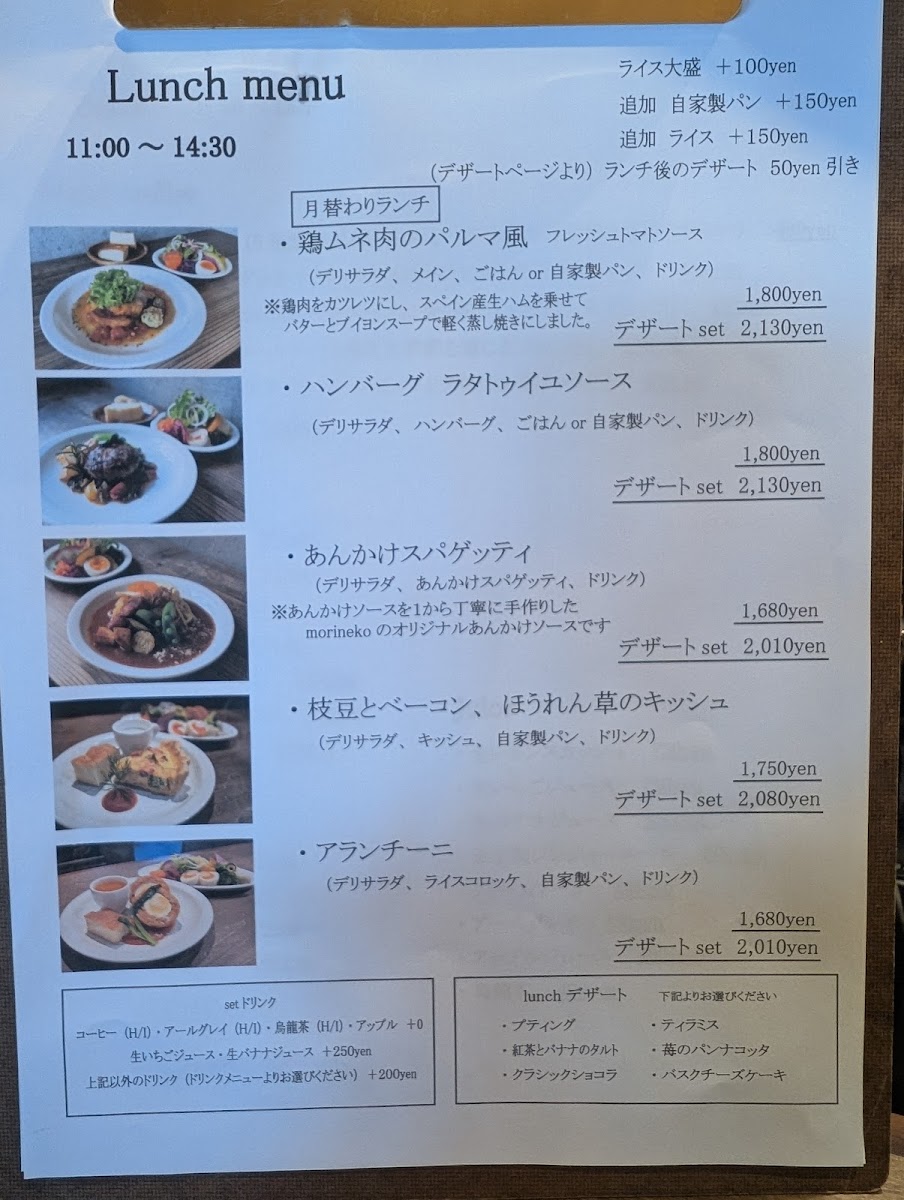 Lunch menu
11:00 ～ 14:30
ライス大盛 ＋100yen
追加 自家製パン ＋150yen
追加 ライス ＋150yen
(デザートページより) ランチ後のデザート 50yen 引き
月替わりランチ
・鶏ムネ肉のパルマ風 フレッシュトマトソース
(デリサラダ、メイン、ごはん or 自家製パン、ドリンク)
※鶏肉をカツレツにし、スペイン産生ハムを乗せて
バターとブイヨンスープで軽く蒸し焼きにしました。
1,800yen
デザート set 2,130yen
・ハンバーグ ラタトゥイユソース
(デリサラダ、ハンバーグ、ごはん or 自家製パン、ドリンク)
1,800yen
デザート set 2,130yen
・あんかけスパゲッティ
(デリサラダ、あんかけスパゲッティ、ドリンク)
※あんかけソースを1から丁寧に手作りした
morineko のオリジナルあんかけソースです
1,680yen
デザート set 2,010yen
・枝豆とベーコン、ほうれん草のキッシュ
(デリサラダ、キッシュ、自家製パン、ドリンク)
1,750yen
デザート set 2,080yen
・アランチーニ
(デリサラダ、ライスコロッケ、自家製パン、ドリンク)
1,680yen
デザート set 2,010yen
set ドリンク
コーヒー (H/I)・アールグレイ (H/I)・烏龍茶 (H/I)・アップル ＋0
生いちごジュース・生バナナジュース ＋250yen
上記以外のドリンク (ドリンクメニューよりお選びください) ＋200yen
lunch デザート 下記よりお選びください
・プティング ・ティラミス
・紅茶とバナナのタルト ・苺のパンナコッタ
・クラシックショコラ ・バスクチーズケーキ